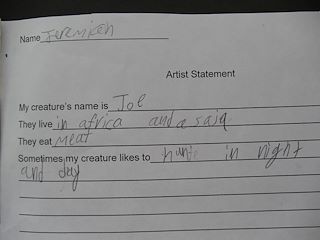 Name Jeremiah
Artist Statement
My creature's name is Joe
They live in africa and a said
They eat meat
Sometimes my creature likes to hunt in night
and day